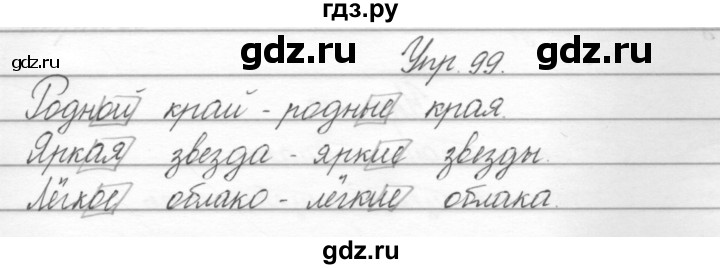 гдз.ру
gdz.ru gdz.ru gdz.ru Упр. 99.
Родной край - родные края.
Яркая звезда - яркие звезды.
Лёгкое облако - лёгкие облака.
gdz.ru gdz.ru